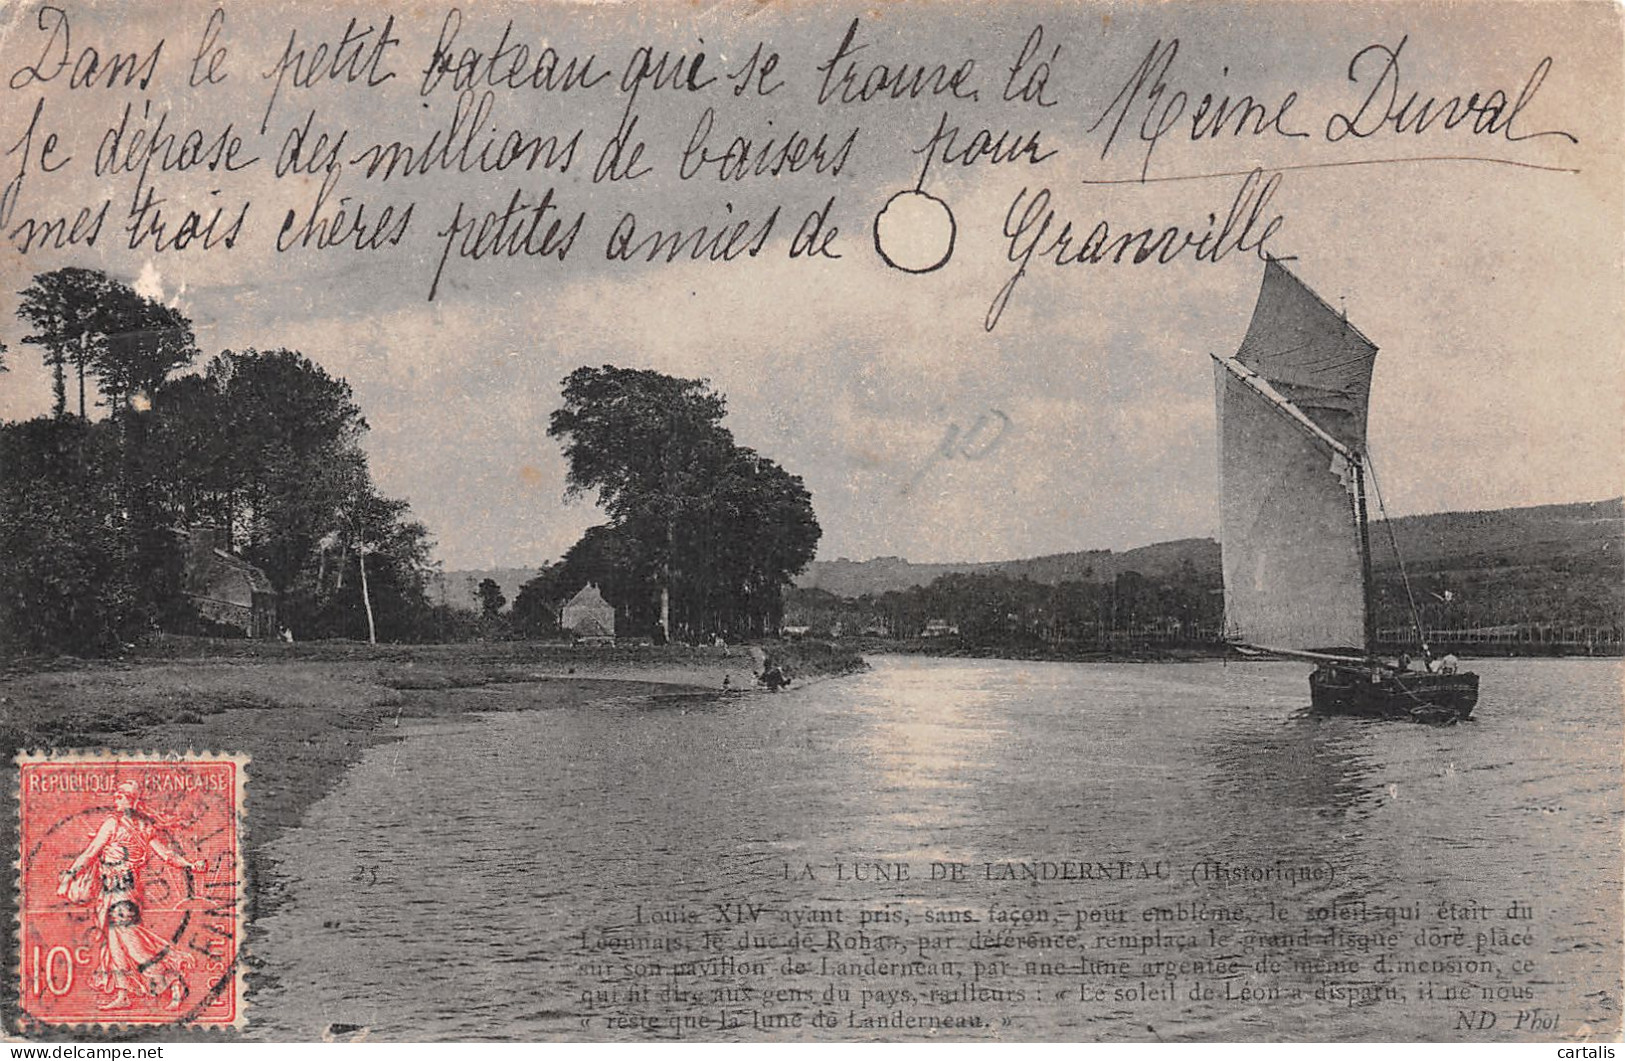 Dans le petit bateau qui se trouve là
Je dépose des millions de baisers pour
mes trois chères petites amies de Granville
Reine Duval
REPUBLIQUE FRANÇAISE
10c
25
LA LUNE DE LANDERNEAU (Historique)
Louis XIV ayant pris, sans façon, pour emblème, le soleil qui était du
Léonnais, le duc de Rohan, par déférence, remplaça le grand disque doré placé
sur son pavillon de Landerneau, par une lune argentée de même dimension, ce
qui fit dire aux gens du pays, railleurs : « Le soleil de Léon a disparu, il ne nous
« reste que la lune de Landerneau. »
ND Phot
cartalis
delcampe.net